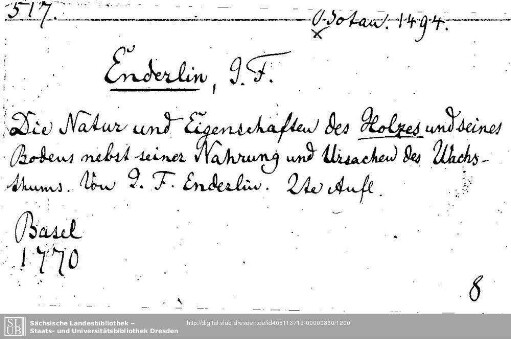 517.
Botan. 1494.
Enderlin, J. F.
Die Natur und Eigenschaften des Holzes und seines
Bodens nebst seiner Nahrung und Ursachen des Wachs-
thums. Von J. F. Enderlin. 2te Aufl
Basel
1770
8
SLUB
Sächsische Landesbibliothek –
Staats- und Universitätsbibliothek Dresden